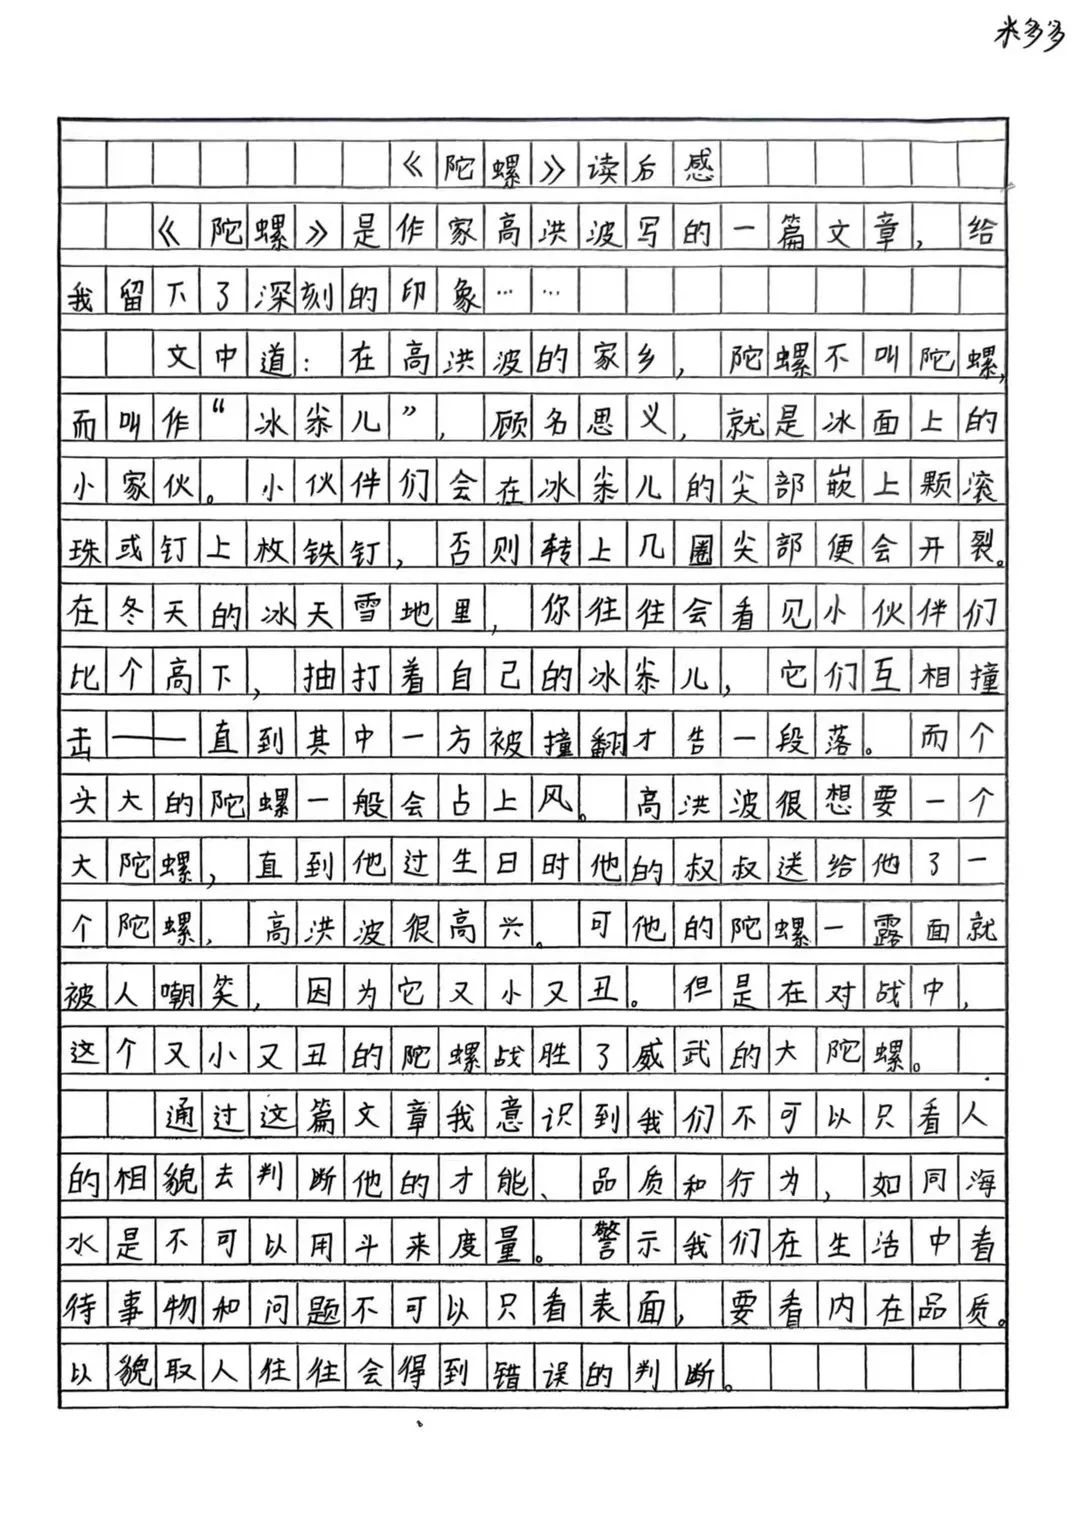 米多多
《陀螺》读后感
《陀螺》是作家高洪波写的一篇文章，给
我留下了深刻的印象……
文中道：在高洪波的家乡，陀螺不叫陀螺，
而叫作“冰尜儿”，顾名思义，就是冰面上的
小家伙。小伙伴们会在冰尜儿的尖部嵌上颗滚
珠或钉上枚铁钉，否则转上几圈尖部便会开裂。
在冬天的冰天雪地里，你往往会看见小伙伴们
比个高下，抽打着自己的冰尜儿，它们互相撞
击——直到其中一方被撞翻才告一段落。而个
头大的陀螺一般会占上风。高洪波很想要一个
大陀螺，直到他过生日时他的叔叔送给他了一
个陀螺，高洪波很高兴。可他的陀螺一露面就
被人嘲笑，因为它又小又丑。但是在对战中，
这个又小又丑的陀螺战胜了威武的大陀螺。
通过这篇文章我意识到我们不可以只看人
的相貌去判断他的才能、品质和行为，如同海
水是不可以用斗来度量。警示我们在生活中看
待事物和问题不可以只看表面，要看内在品质。
以貌取人往往会得到错误的判断。